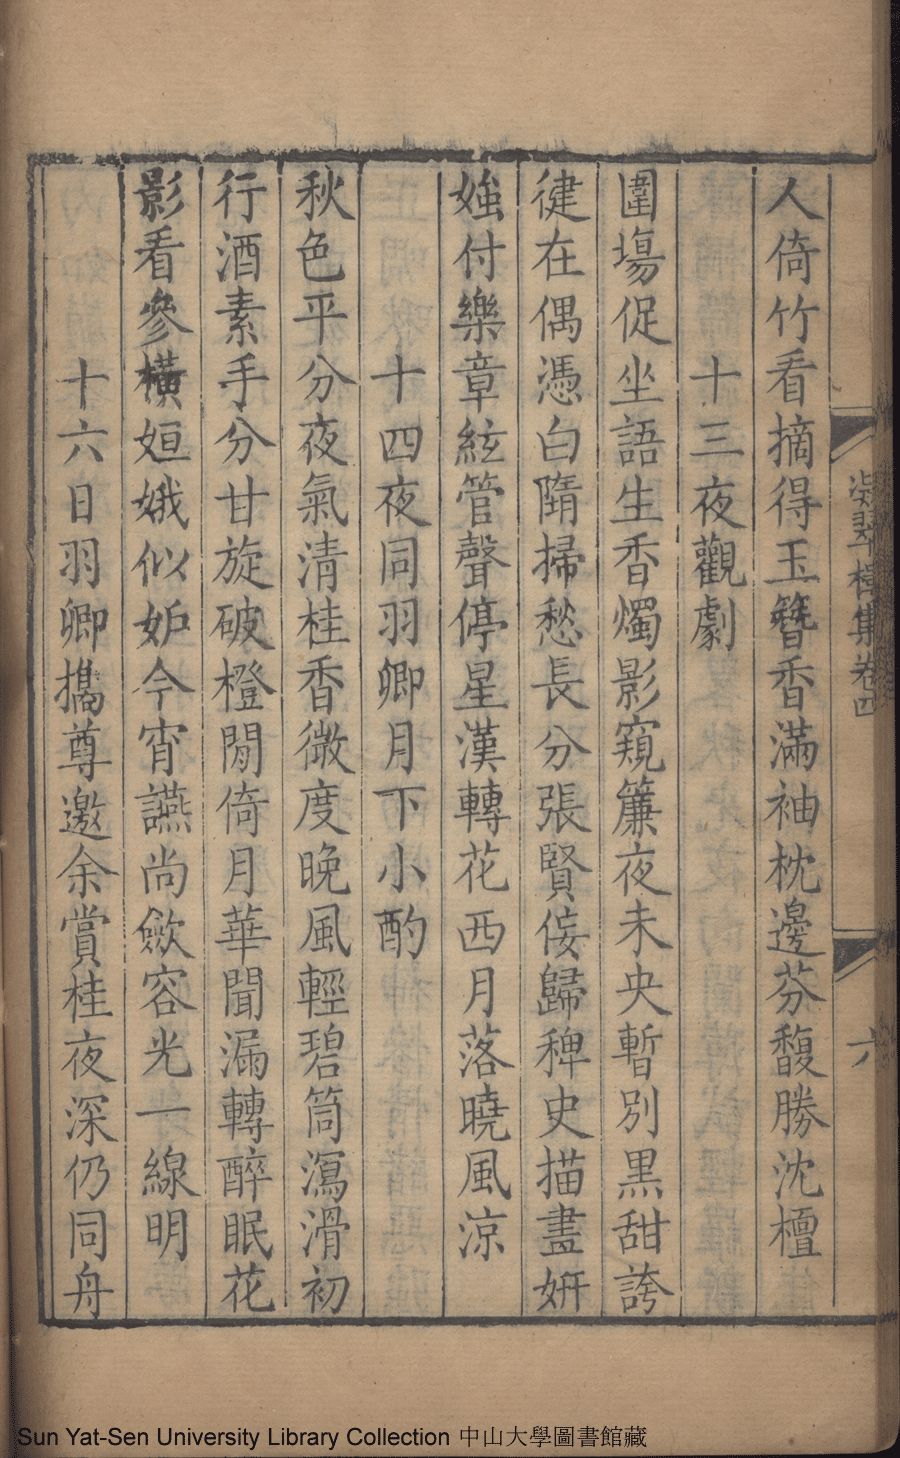 人倚竹看摘得玉簪香滿袖枕邊芬馥勝沈檀
十三夜觀劇
圍塲促坐語生香燭影窺簾夜未央暫別黒甜誇
徤在偶憑白墮掃愁長分張賢佞歸稗史描畫妍
媸付樂章絃管聲停星漢轉花西月落曉風涼
十四夜同羽卿月下小酌
秋色平分夜氣清桂香微度晚風輕碧筒瀉滑初
行酒素手分甘旋破橙閒倚月華聞漏轉醉眠花
影看參橫姮娥似妒今宵讌尚歛容光一線明
十六日羽卿攜尊邀余賞桂夜深仍同舟
凝翠樓集卷四
六
Sun Yat-Sen University Library Collection 中山大學圖書館藏